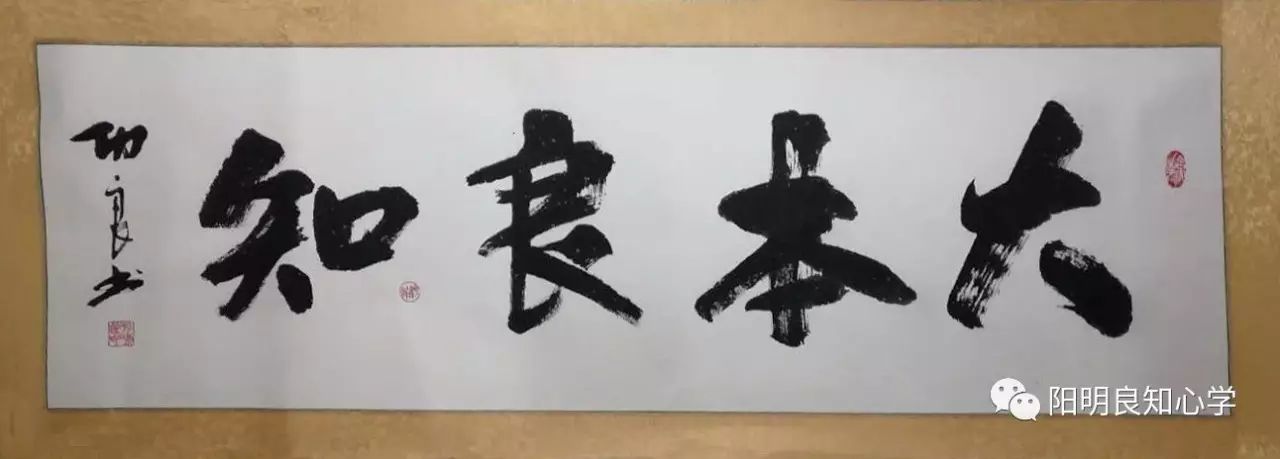 大本良知
功良书
阳明良知心学